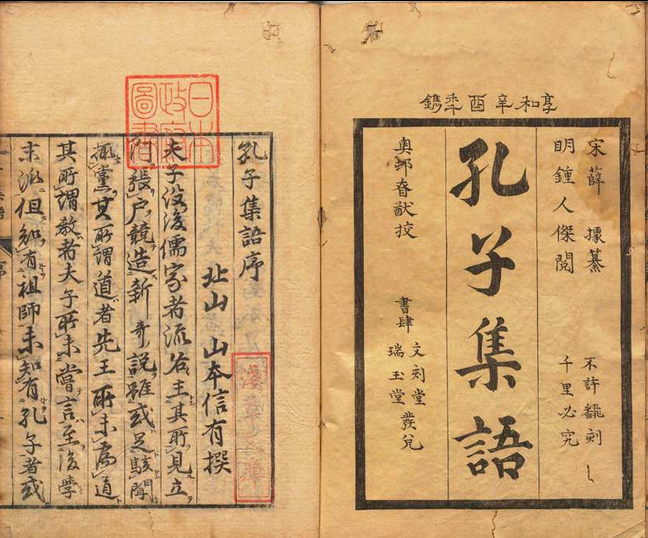 享和辛酉季鐫
宋薛 據纂
明鍾人傑閲
不許飜刻
千里必究
孔子集語
奥邨春猷挍
書肆 文刻堂
瑞玉堂 發兌
孔子集語序
北山 山本信有撰
夫子没後儒家者流各主其所見立
門張戶競造新奇説雖或足駭聞
其所謂道者先王所未為道
其所謂教者夫子所未嘗言至後學
末派但知有祖師未知有孔子者或
日本政府圖書
淺草文庫